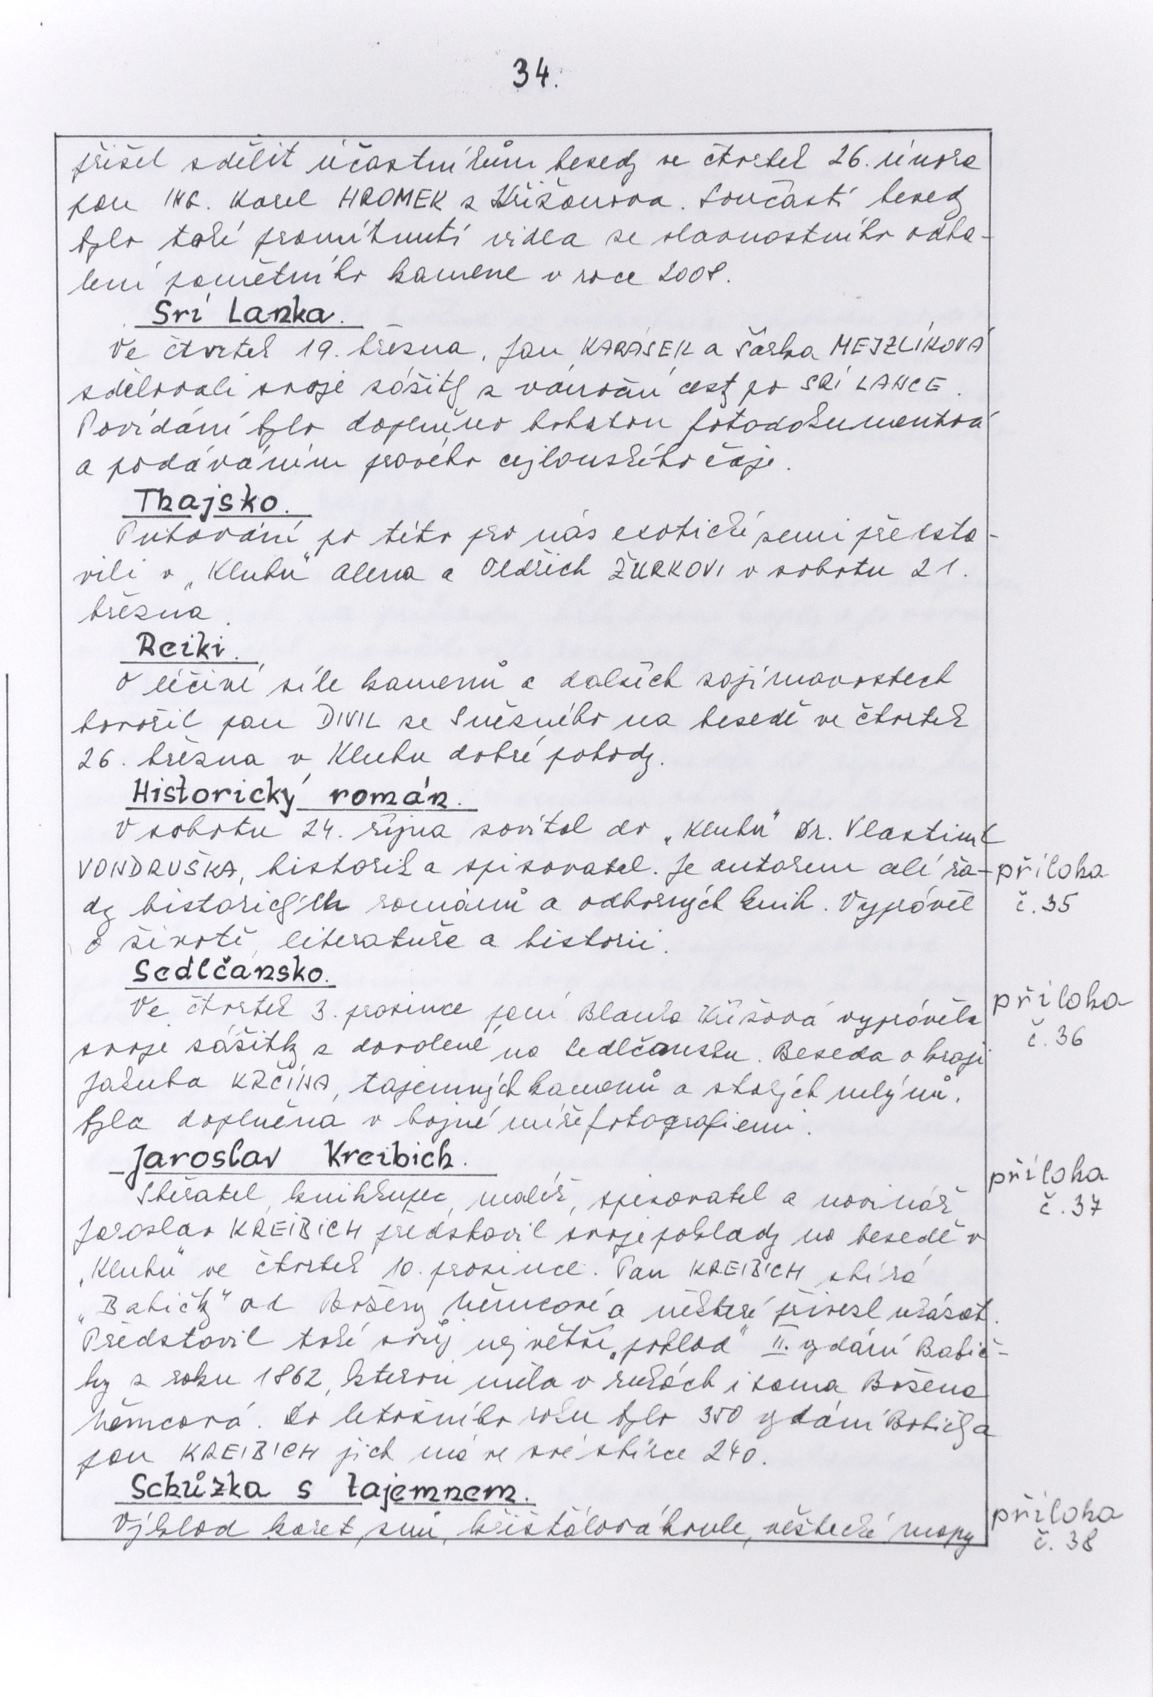 34.
přišel sdělit účastníkům besedy ve čtvrtek 26. února
pan ING. Karel HROMEK z Křižanova. Součástí besedy
bylo také promítnutí videa se slavnostního odha-
lení pamětního kamene v roce 2008.
Srí Lanka.
Ve čtvrtek 19. března, Jan KARÁSEK a Šárka MEJZLÍKOVÁ
sdělovali svoje zážitky z vánoční cesty po SRÍ LANCE.
Povídání bylo doplněno bohatou fotodokumentací
a podáváním pravého cejlonského čaje.
Thajsko.
Putování po této pro nás exotické zemi předsta-
vili v "Klubu" Alena a Oldřich ŽURKOVI v sobotu 21.
března.
Reiki.
O léčivé síle kamenů a dalších zajímavostech
hovořil pan DIVIL ze Sněžného na besedě ve čtvrtek
26. března v Klubu dobré pohody.
Historický román.
V sobotu 24. října zavítal do "Klubu" Dr. Vlastimil
VONDRUŠKA, historik a spisovatel. Je autorem celé řa-
dy historických románů a odborných knih. Vyprávěl
o životě, literatuře a historii.
příloha
č. 35
Sedlčansko.
Ve čtvrtek 3. prosince paní Blanka Křížová vyprávěla
svoje zážitky z dovolené na Sedlčansku. Beseda o kraji
Jakuba KRČÍNA, tajemných kamenů a starých mlýnů,
byla doplněna v hojné míře fotografiemi.
příloha
č. 36
Jaroslav Kreibich.
Sběratel, knihkupec, malíř, spisovatel a novinář
Jaroslav KREIBICH představil svoje poklady na besedě v
"Klubu" ve čtvrtek 10. prosince. Pan KREIBICH sbírá
"Babičky" od Boženy Němcové a některé přivezl ukázat.
Představil také svůj největší "poklad" II. vydání Babič-
ky z roku 1862, kterou měla v rukách i sama Božena
Němcová. Do letošního roku bylo 350 vydání Babičky a
pan KREIBICH jich má ve své sbírce 240.
příloha
č. 37
Schůzka s tajemnem.
Výklad karet, snů, křišťálová koule, věštecké mapy
příloha
č. 38